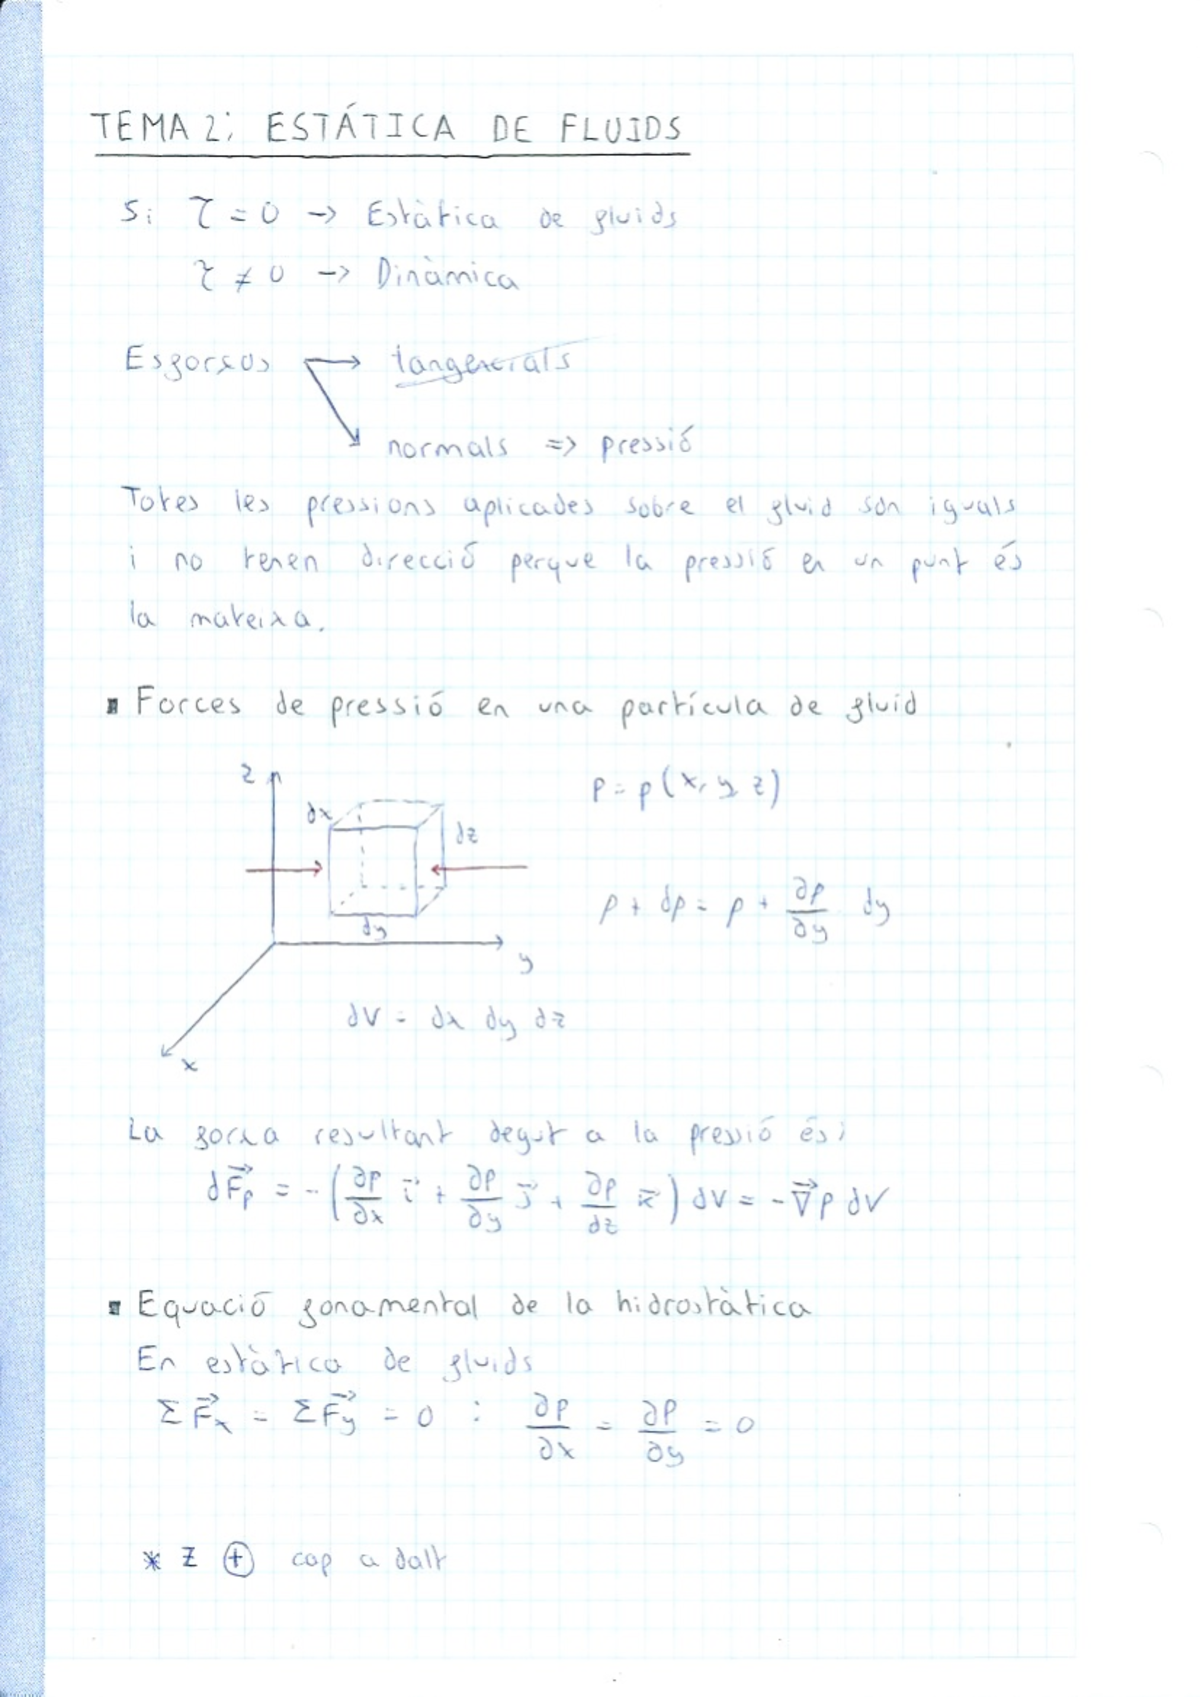 TEMA 2: ESTÁTICA DE FLUIDS
Si τ = 0 → Estàtica de fluids
τ ≠ 0 → Dinàmica
Esforços → tangencials
normals => pressió
Totes les pressions aplicades sobre el fluid són iguals
i no tenen direcció perque la pressió en un punt és
la mateixa.
▪ Forces de pressió en una partícula de fluid
z
p = p(x, y, z)
dx
dz
p + dp = p + ∂p/∂y dy
dy
y
dV = dx dy dz
x
La força resultant degut a la pressió és:
dF⃗p = -(∂p/∂x i⃗ + ∂p/∂y j⃗ + ∂p/dz k⃗) dV = -∇⃗p dV
▪ Equació fonamental de la hidrostàtica
En estàtica de fluids
ΣF⃗x = ΣF⃗y = 0 : ∂p/∂x = ∂p/∂y = 0
* Z ⊕ cap a dalt